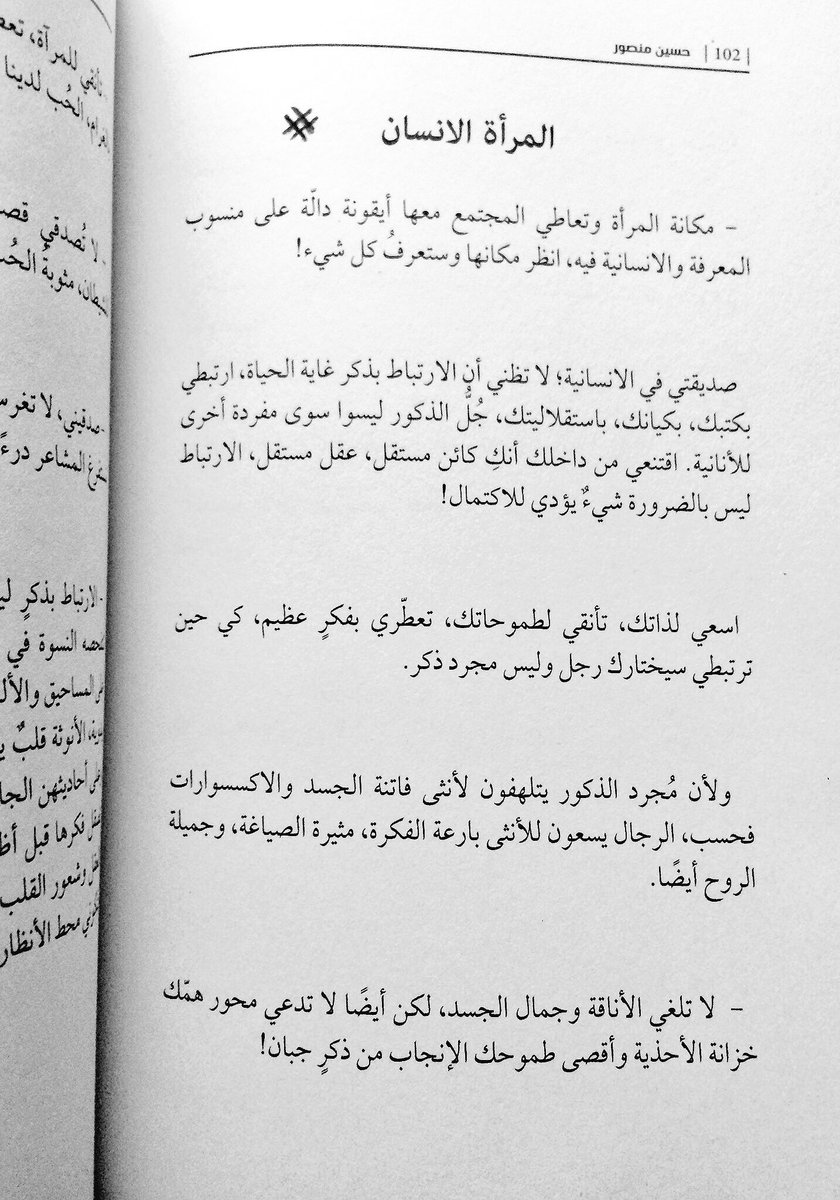 | 102 | حسين منصور
المرأة الانسان #
- مكانة المرأة وتعاطي المجتمع معها أيقونة دالّة على منسوب
المعرفة والانسانية فيه، انظر مكانها وستعرفُ كل شيء!
صديقتي في الانسانية؛ لا تظني أن الارتباط بذكر غاية الحياة، ارتبطي
بكتبك، بكيانك، باستقلاليتك، جُلُّ الذكور ليسوا سوى مفردة أخرى
للأنانية. اقتنعي من داخلك أنكِ كائن مستقل، عقل مستقل، الارتباط
ليس بالضرورة شيءٌ يؤدي للاكتمال!
اسعي لذاتك، تأنقي لطموحاتك، تعطّري بفكرٍ عظيم، كي حين
ترتبطي سيختارك رجل وليس مجرد ذكر.
ولأن مُجرد الذكور يتلهفون لأنثى فاتنة الجسد والاكسسوارات
فحسب، الرجال يسعون للأنثى بارعة الفكرة، مثيرة الصياغة، وجميلة
الروح أيضًا.
- لا تلغي الأناقة وجمال الجسد، لكن أيضًا لا تدعي محور همّك
خزانة الأحذية وأقصى طموحك الإنجاب من ذكرٍ جبان!
للمرآة،
الحُب لدينا
- لا تُصدقي
مثوبة
-صدقيني، لا
المشاعر درءً
- الارتباط بذكرٍ
النسوة في
المساحيق
الأنوثة قلبٌ
أحاديثهن
فكرها قبل
وشعور القلب
محط الأنظار